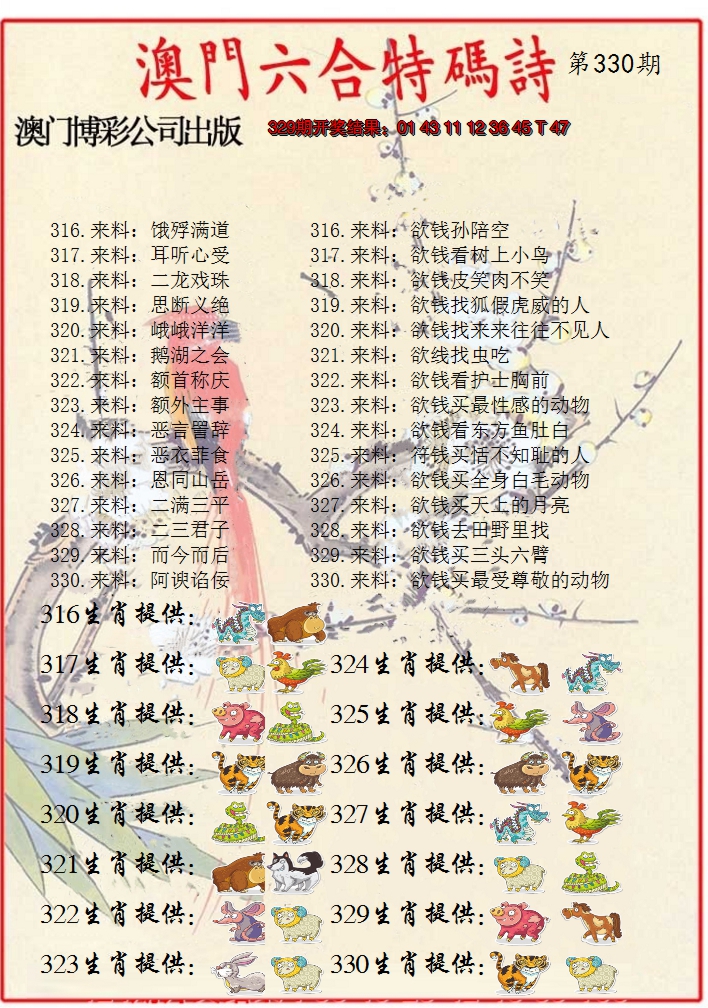 澳門六合特碼詩 第330期
澳门博彩公司出版 329期开奖结果：01 43 11 12 36 45 T 47
316.来料：饿殍满道 316.来料：欲钱孙陪空
317.来料：耳听心受 317.来料：欲钱看树上小鸟
318.来料：二龙戏珠 318.来料：欲钱皮笑肉不笑
319.来料：恩断义绝 319.来料：欲钱找狐假虎威的人
320.来料：峨峨洋洋 320.来料：欲钱找来来往往不见人
321.来料：鹅湖之会 321.来料：欲线找虫吃
322.来料：额首称庆 322.来料：欲钱看护士胸前
323.来料：额外主事 323.来料：欲钱买最性感的动物
324.来料：恶言詈辞 324.来料：欲钱看东方鱼肚白
325.来料：恶衣菲食 325.来料：符钱买恬不知耻的人
326.来料：恩同山岳 326.来料：欲钱买全身白毛动物
327.来料：二满三平 327.来料：欲钱买天上的月亮
328.来料：二三君子 328.来料：欲钱去田野里找
329.来料：而今而后 329.来料：欲钱买三头六臂
330.来料：阿谀谄佞 330.来料：欲钱买最受尊敬的动物
316生肖提供：
317生肖提供： 324生肖提供：
318生肖提供： 325生肖提供：
319生肖提供： 326生肖提供：
320生肖提供： 327生肖提供：
321生肖提供： 328生肖提供：
322生肖提供： 329生肖提供：
323生肖提供： 330生肖提供：